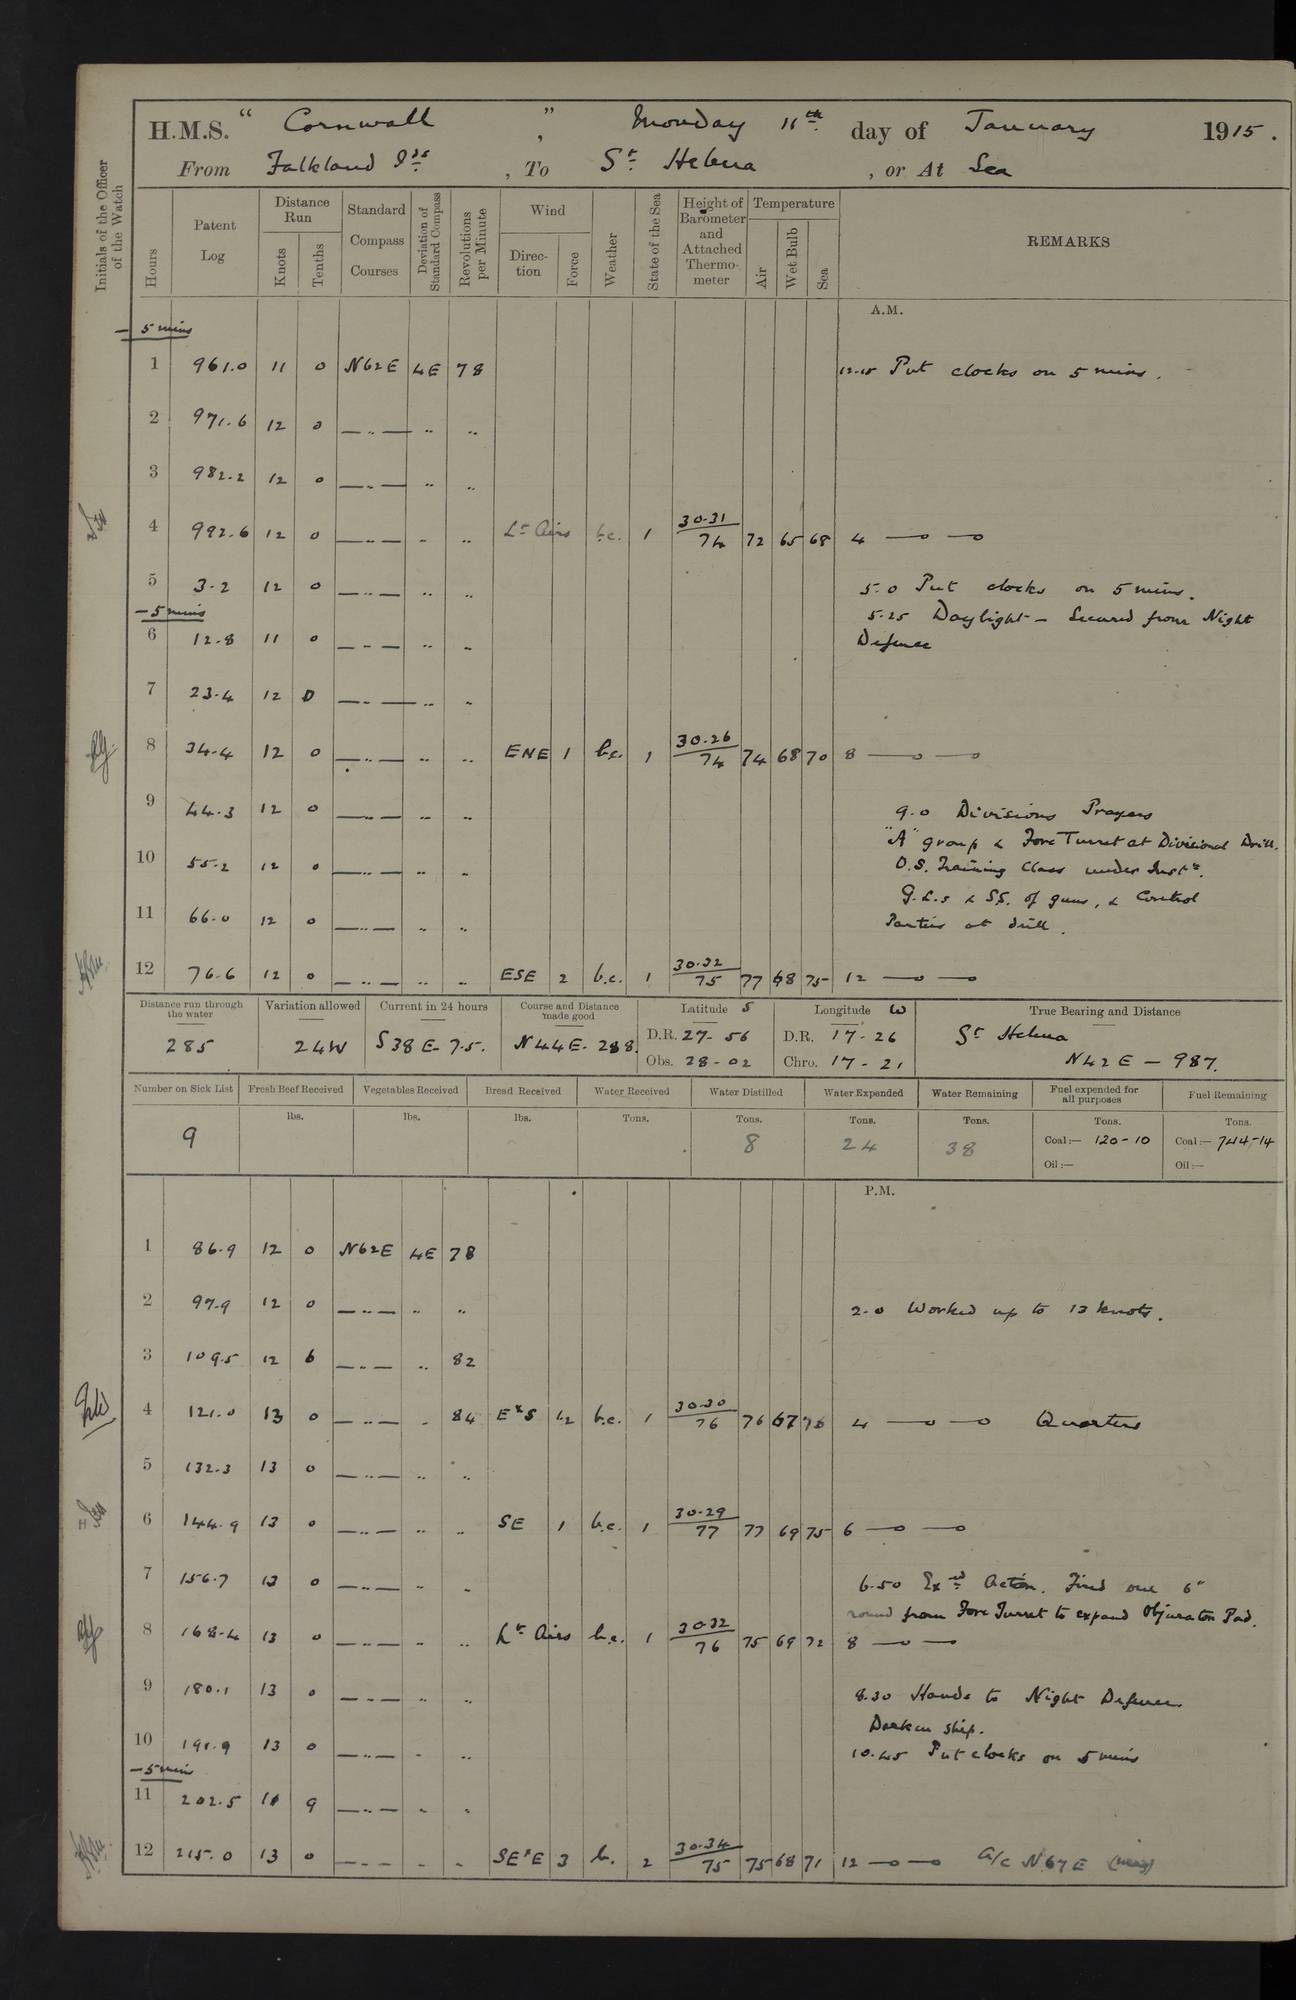 H.M.S. " Cornwall " , Monday 11th day of January 1915.
From Falkland Ids , To St Helena , or At Sea
Initials of the Officer of the Watch
Hours
Patent Log
Distance Run
Knots
Tenths
Standard Compass Courses
Deviation of Standard Compass
Revolutions per Minute
Wind
Direction
Force
Weather
State of the Sea
Height of Barometer and Attached Thermometer
Temperature
Air
Wet Bulb
Sea
REMARKS
A.M.
- 5 mins
1 961.0 11 0 N62E 4E 78 12-15 Put clocks on 5 mins.
2 971.6 12 0 —..— .. ..
3 982.2 12 0 —..— .. ..
4 992.6 12 0 —..— .. .. Lt Airs b.c. 1 30.31/74 72 65 68 4 —o —o
5 3.2 12 0 —..— .. .. 5.0 Put clocks on 5 mins.
- 5 mins
5.25 Daylight - Secured from Night
6 12.8 11 0 —..— .. .. Defence
7 23.4 12 0 —..— .. ..
8 34.4 12 0 —..— .. .. ENE 1 b.c. 1 30.26/74 74 68 70 8 —o —o
9 44.3 12 0 —..— .. .. 9.0 Divisions Prayers
"A" group & Fore Turret at Divisional Drill.
10 55.2 12 0 —..— .. .. O.S. Training Class under Instn.
G.L.s & S.S. of guns, & Control
11 66.0 12 0 —..— .. .. Parties at drill.
12 76.6 12 0 —..— .. .. ESE 2 b.c. 1 30.32/75 77 68 75 12 —o —o
Distance run through the water
285
Variation allowed
24W
Current in 24 hours
S38E - 7.5.
Course and Distance made good
N44E - 288.
Latitude S
D.R. 27-56
Obs. 28-02
Longitude W
D.R. 17-26
Chro. 17-21
True Bearing and Distance
St Helena
N42E - 987.
Number on Sick List
9
Fresh Beef Received
lbs.
Vegetables Received
lbs.
Bread Received
lbs.
Water Received
Tons.
Water Distilled
Tons.
8
Water Expended
Tons.
24
Water Remaining
Tons.
38
Fuel expended for all purposes
Tons.
Coal:— 120-10
Oil:—
Fuel Remaining
Tons.
Coal:— 744-14
Oil:—
P.M.
1 86.9 12 0 N62E 4E 78
2 97.9 12 0 —..— .. .. 2.0 Worked up to 13 knots.
3 109.5 12 6 —..— .. 82
4 121.0 13 0 —..— .. 84 ExS 1/2 b.c. 1 30.30/76 76 67 4 —o —o Quarters
5 132.3 13 0 —..— .. ..
6 144.9 13 0 —..— .. .. SE 1 b.c. 1 30.29/77 77 69 75 6 —o —o
7 156.7 13 0 —..— .. .. 6.50 Exed Action. Fired one 6"
round from Fore Turret to expand Objuraton Pad.
8 168.4 13 0 —..— .. .. Lt Airs b.c. 1 30.32/76 75 69 72 8 —o —o
9 180.1 13 0 —..— .. .. 8.30 Hands to Night Defence.
Darken ship.
10 191.9 13 0 —..— .. .. 10.45 Put clocks on 5 mins
- 5 mins
11 202.5 11 9 —..— .. ..
12 215.0 13 0 —..— .. .. SExE 3 b. 2 30.34/75 75 68 71 12 —o —o A/C N67E